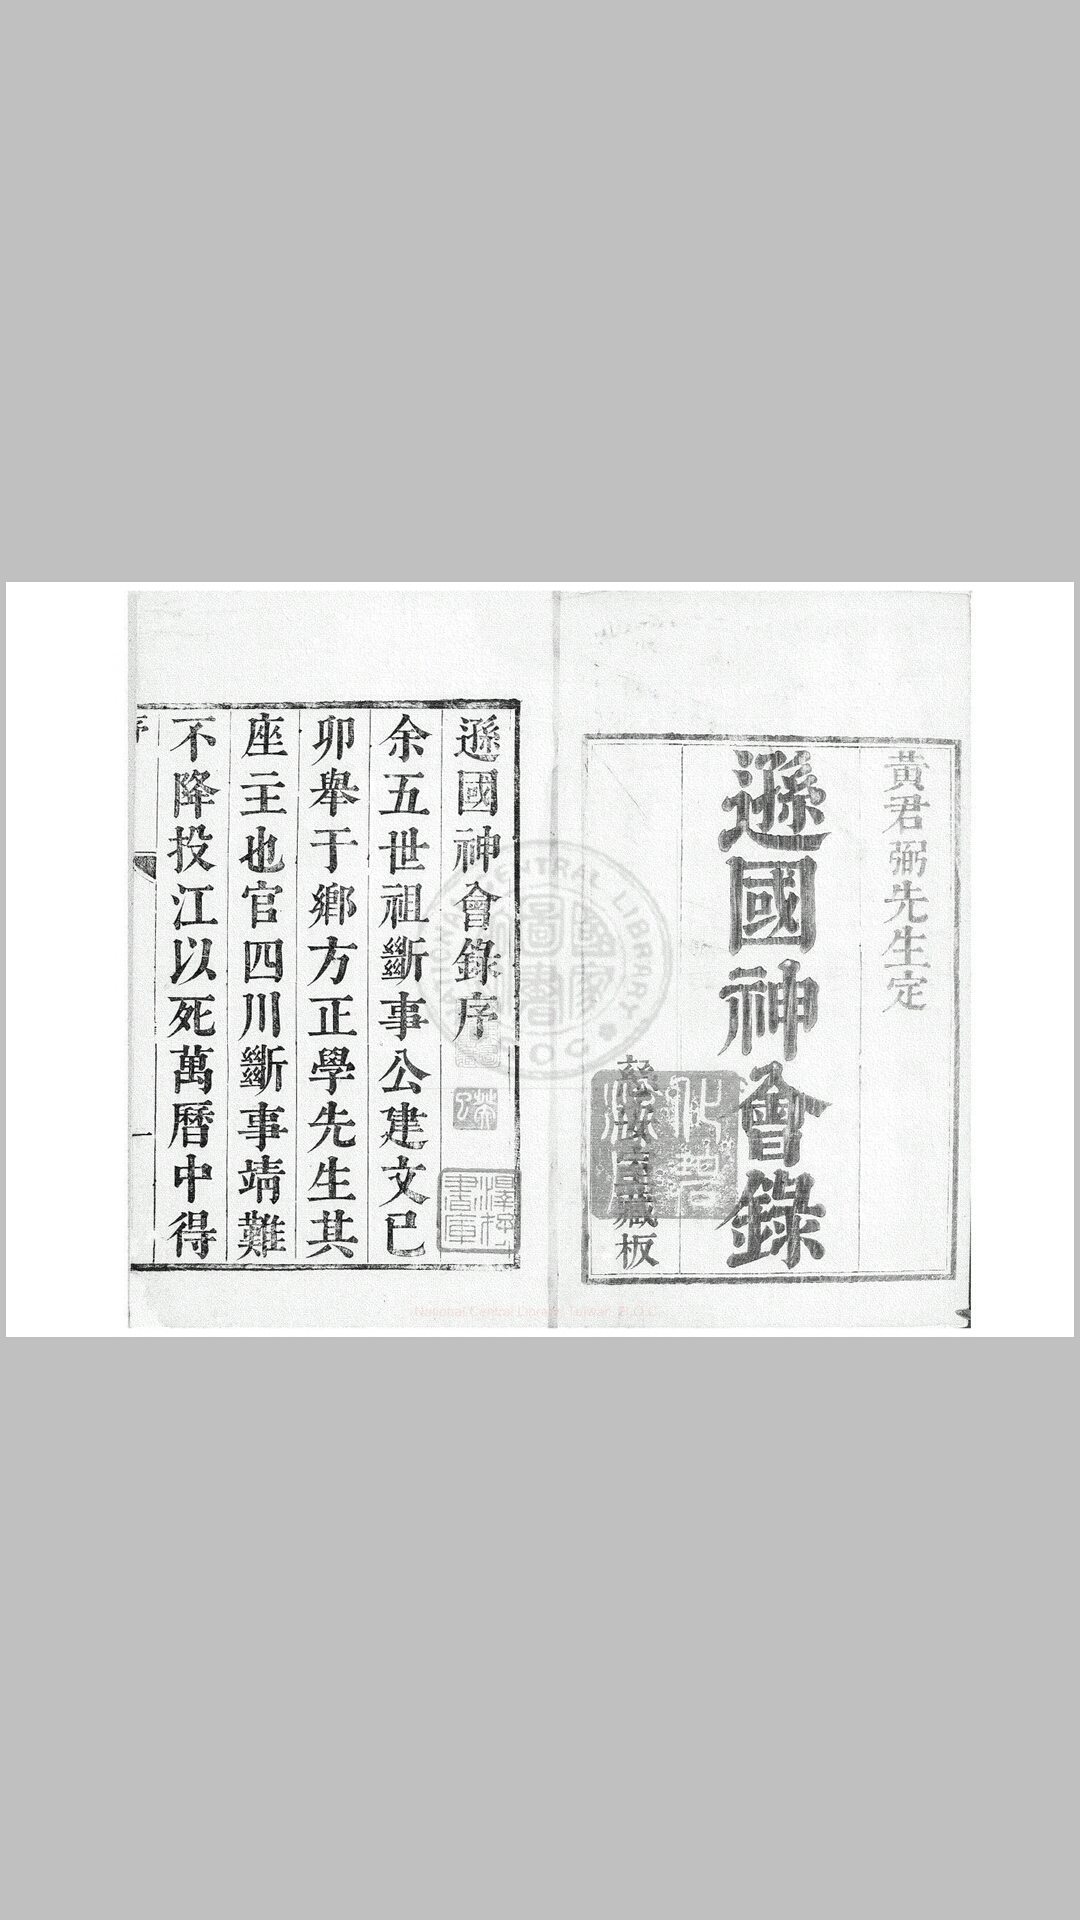 黃君弼先生定
遜國神會錄
藏板
遜國神會錄序
余五世祖斷事公建文己
卯舉于鄉方正學先生其
座主也官四川斷事靖難
不降投江以死萬曆中得
序
一
澤存書庫
國家圖書館
NATIONAL CENTRAL LIBRARY
R.O.C.
National Central Library, Taiwan, R.O.C.